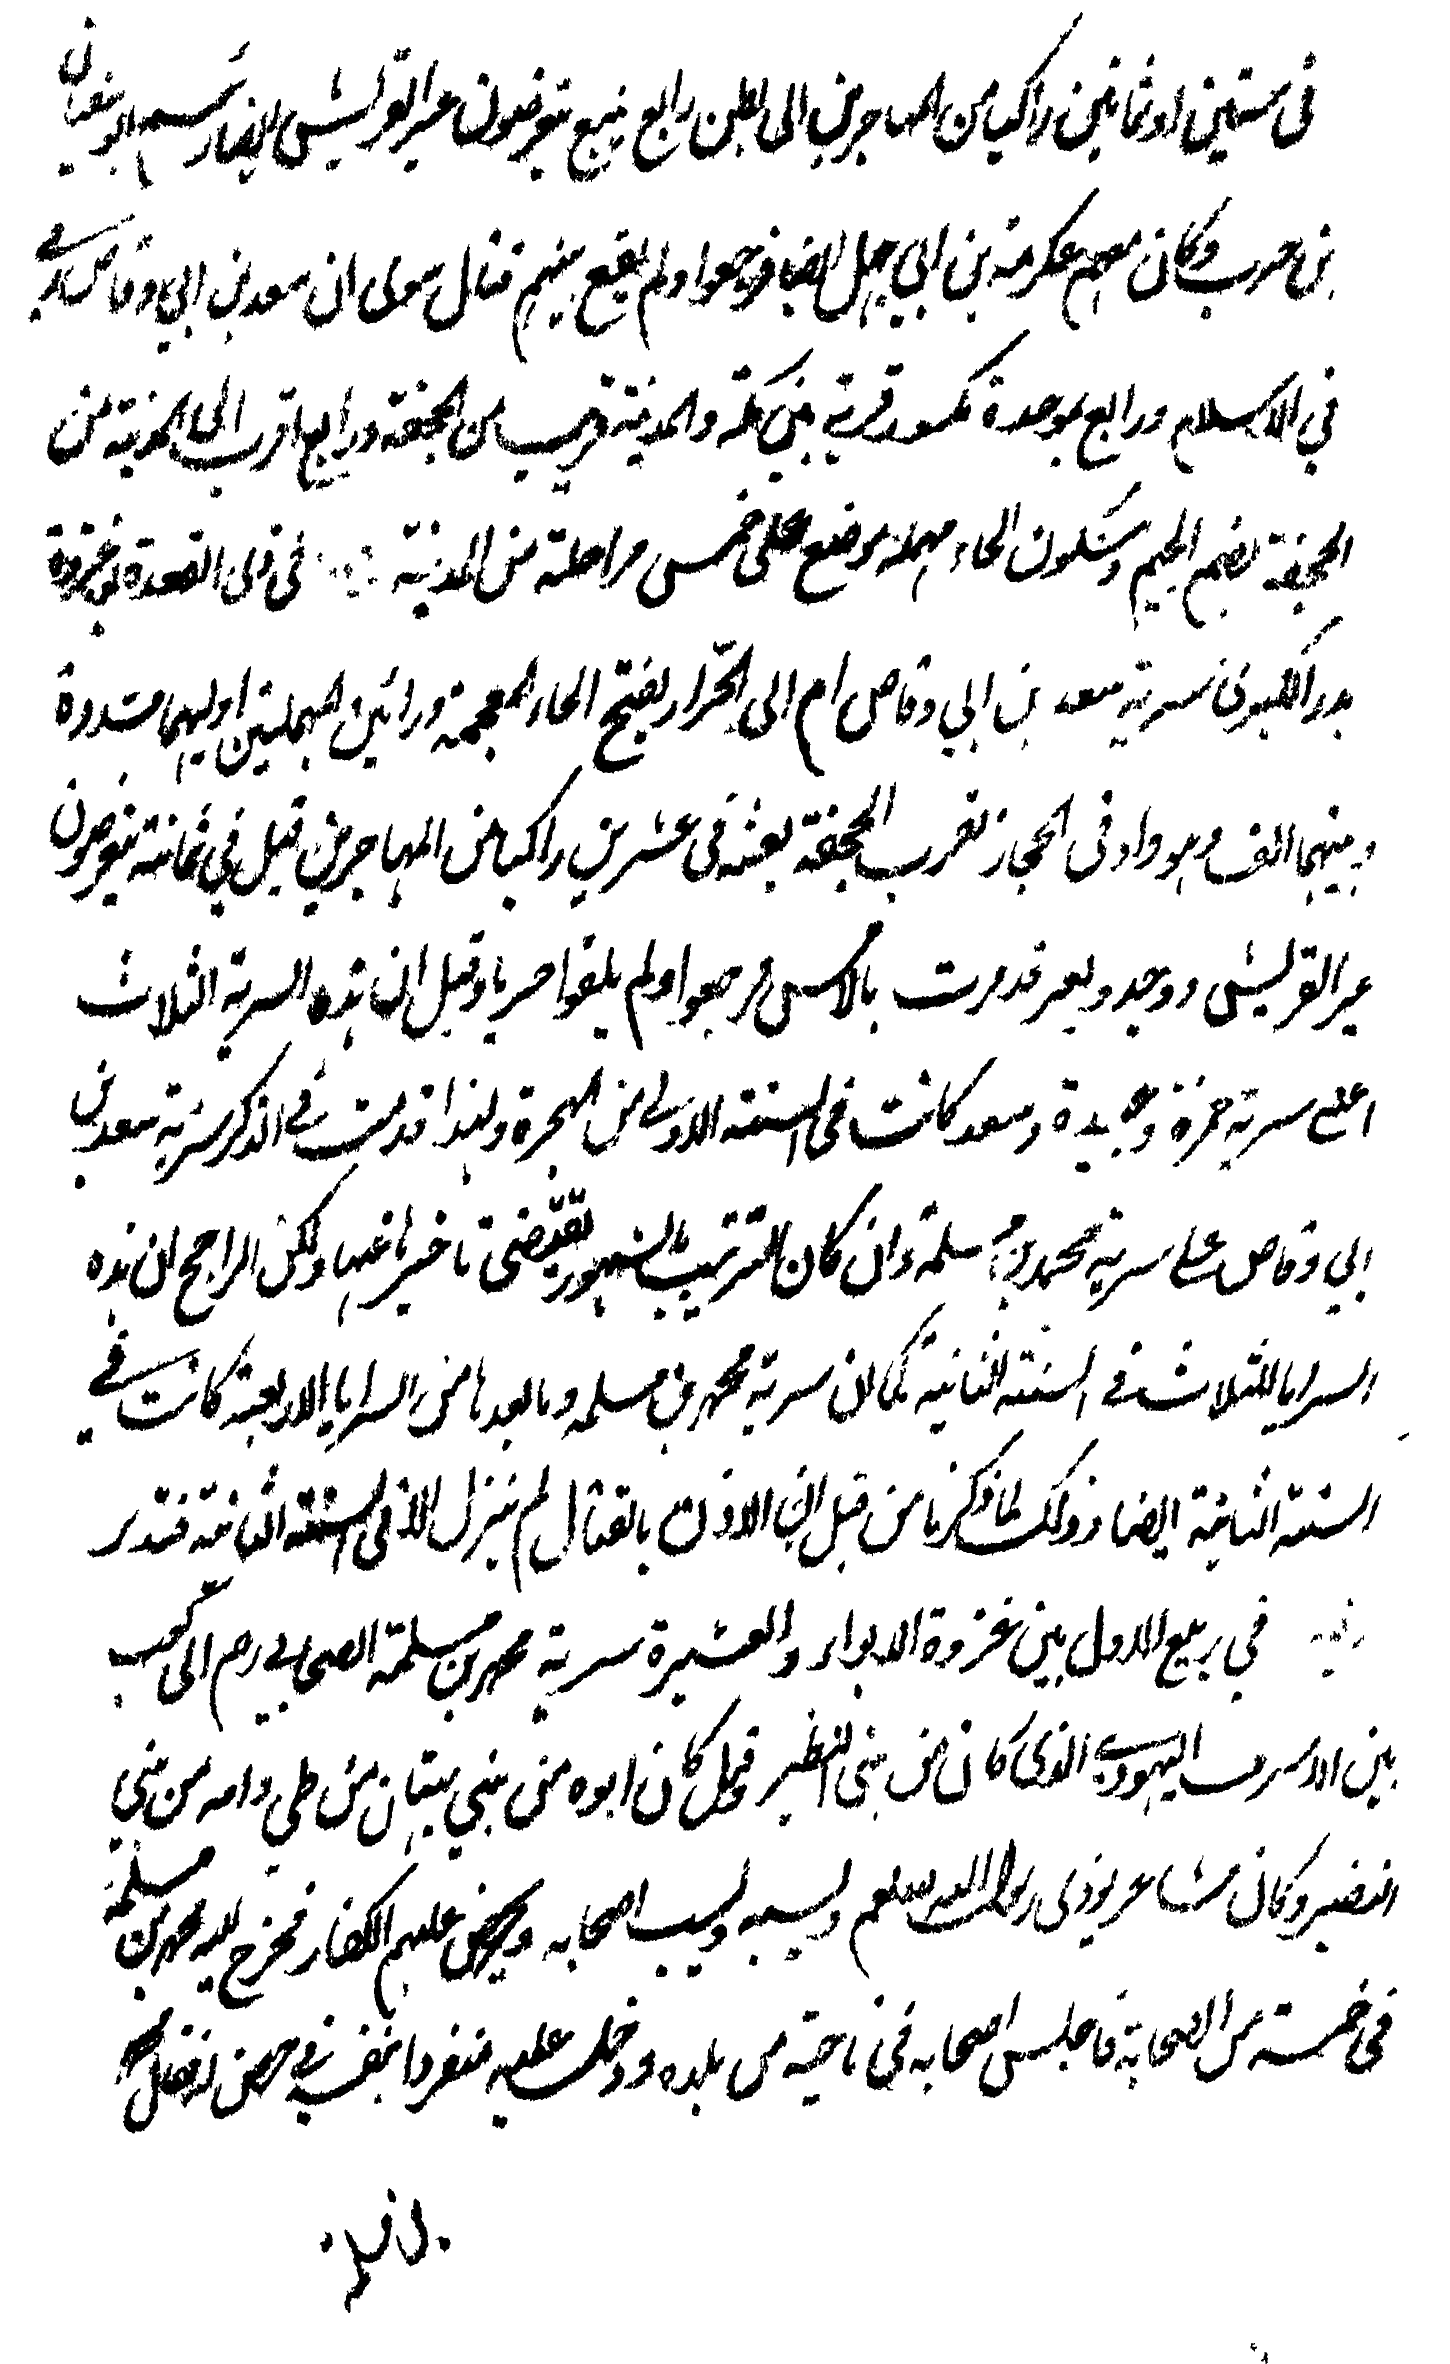 فى ستين او ثمانين راكبا من المهاجرين الى بطن رابغ ينبع يتعرضون عير القريش ايضا رئيسهم ابو سفيان
بن حرب وكان معهم عكرمة بن ابي جهل ايضا فرجعوا ولم يقع بينهم قتال سوى ان سعد بن ابي وقاص رمى
في الاسلام ورابع بموحدة مكسورة قرية بين مكة والمدينة قريب من الجحفة ورابع اقرب الى المدينة من
الجحفة بضم الجيم وسكون الحاء مهملة موضع على خمس مراحلة من المدينة فى ذى القعدة بعد غزوة
بدر الكبرى سرية سعد بن ابي وقاص ام الى الخرار بفتح الخاء المعجمة ورائين المهملتين اوليهما مشددة
وبينهما الف وهو واد فى الحجاز بقرب الجحفة بعثه فى عشرين راكبا من المهاجرين قيل في ثمانية يتعرضون
عير القريش ووجدو بعير قد مرت بالامس فرجعوا ولم يلقوا حربا وقيل ان هذه السرية الثلاث
اعنى سرية حمزة وعبيدة وسعد كانت فى السنة الاولى من الهجرة ولهذا قدمت في الذكر سرية سعد بن
ابي وقاص على سرية محمد بن مسلمة وان كان الترتيب الشهور يقتضى تاخيرها عنها ولكن الراجح ان هذه
السرايا الثلاث في السنة الثانية كما ان سرية محمد بن مسلمه وما بعدها من السرايا الاربعة كانت في
السنة الثانية ايضا وذلك لما ذكرنا من قبل ان الاذن بالقتال لم ينزل الا فى السنة الثانية فتدبر
وفيه في ربيع الاول بين غزوة الابواء والعشيرة سرية محمد بن مسلمة الصحابي رم الى كعب
بن الاشرف اليهودي الذى كان من بنى النظير وقيل كان ابوه من بني نبهان من طي وامه من بني
النضير وكان شاعر يوذى رسول الله صلعم ويسبه ويسب اصحابه ويحرض عليهم الكفار فخرج اليه محمد بن مسلمة
فى خمسة من الصحابة فاجلس اصحابه فى ناحية من بلده ودخل عليه منفردا بنفسه في حصن